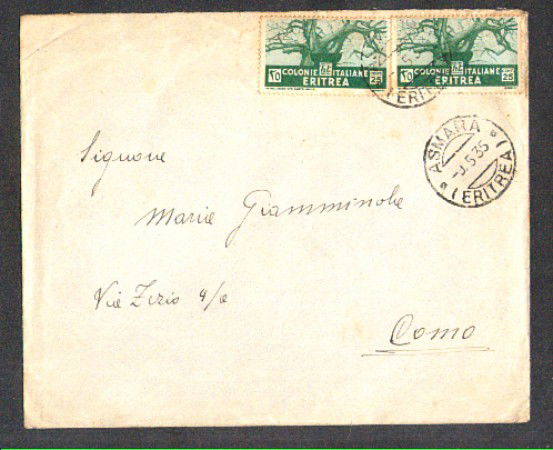 ٢٥ COLONIE ITALIANE 25
ERITREA
٢٥ COLONIE ITALIANE 25
ERITREA
(ERITREA
ASMARA
-.5.35
(ERITREA)
Signore
Maria Giamminola
Via Zezio 9/a
Como